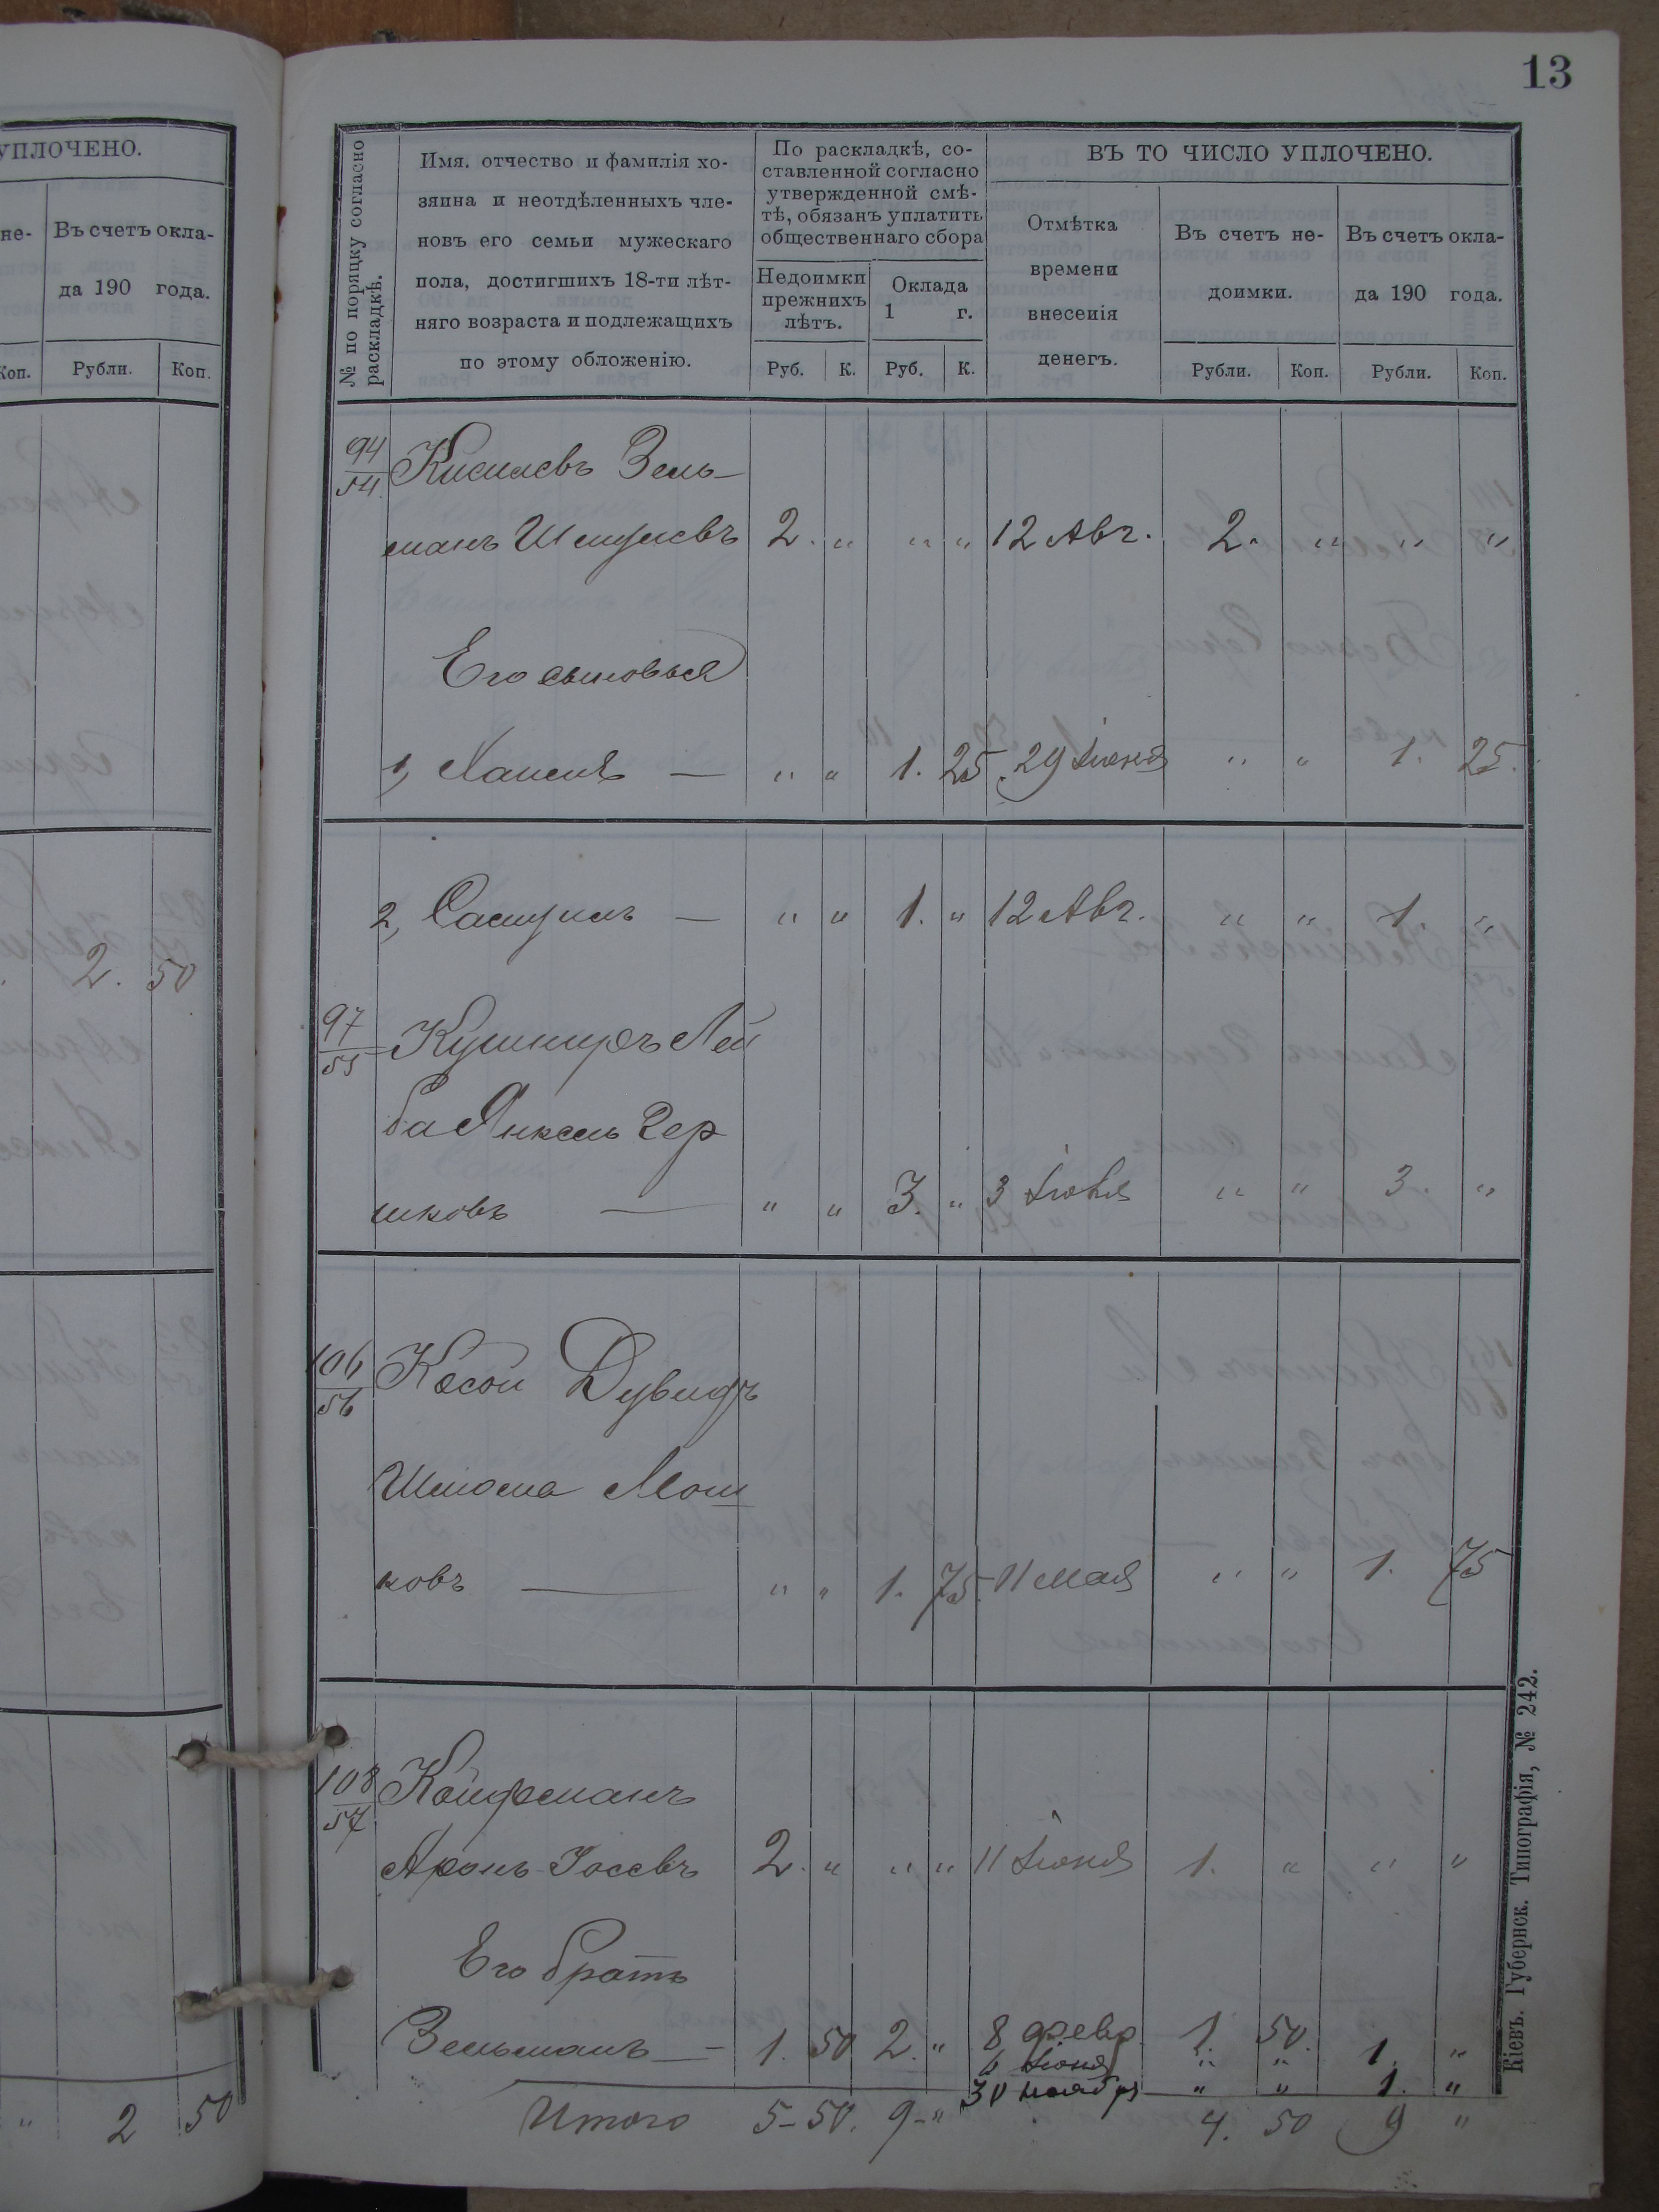 УПЛОЧЕНО.
не-
Въ счетъ окла-
да 190 года.
Коп. Рубли. Коп.
2. 50
" 2 50
13
№ по порядку согласно
раскладкѣ.
Имя, отчество и фамилія хо-
зяина и неотдѣленныхъ чле-
новъ его семьи мужескаго
пола, достигшихъ 18-ти лѣт-
няго возраста и подлежащихъ
по этому обложенію.
По раскладкѣ, со-
ставленной согласно
утвержденной смѣ-
тѣ, обязанъ уплатить
общественнаго сбора
Недоимки
прежнихъ
лѣтъ.
Оклада
1 г.
Руб. К. Руб. К.
ВЪ ТО ЧИСЛО УПЛОЧЕНО.
Отмѣтка
времени
внесенія
денегъ.
Въ счетъ не-
доимки.
Въ счетъ окла-
да 190 года.
Рубли. Коп. Рубли. Коп.
94
54. Киселевъ Зель-
манъ Шмулевъ 2. " " " 12 Авг. 2. " " "
Его сыновья
1, " " 1. 25 29 Іюня " " 1. 25.
2, Самуилъ — " " 1. " 12 Авг. " " 1. "
97
55 Кушниръ Лей
ба Янкель Гер
шковъ — " " 3. " 3 " " 3. "
106
56 Косой Дувидъ
Шлома Мош
ковъ — " " 1. 75. 11 мая " " 1. 75
108
57 Койфманъ
Аронъ Іосевъ 2. " " " 11 Іюня 1. " " "
Его братъ
Зельманъ — 1. 50 2. " 8 февр. 1. 50.
6 Іюня " " 1. "
30 ноября " " 1. "
Итого 5-50. 9-" 4. 50 9 "
Кіевъ. Губернск. Типографія, № 242.